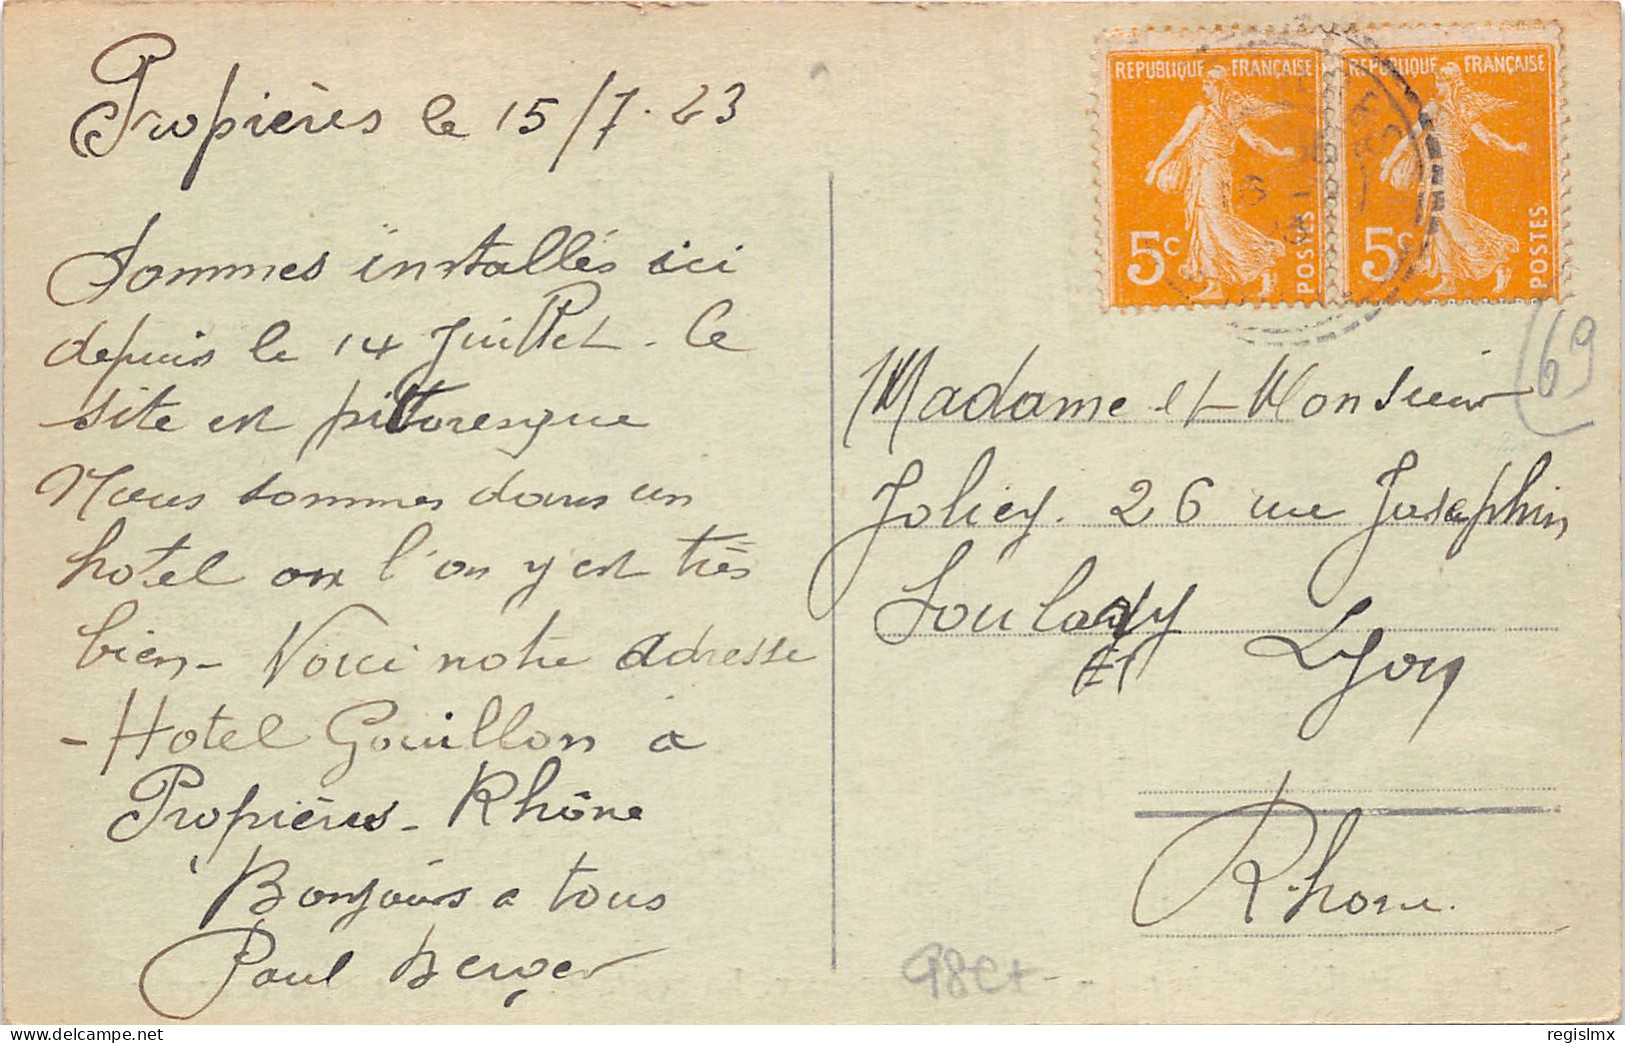 Propières le 15/7.23
Sommes installés ici
depuis le 14 Juillet. Ce
site est pittoresque
Nous sommes dans un
hotel ou l'on y est très
bien - Voici notre adresse
- Hotel Gouillon a
Propières - Rhône
Bonjours a tous
Paul Berger
REPUBLIQUE FRANÇAISE
5c
POSTES
REPUBLIQUE FRANÇAISE
5c
POSTES
(69
Madame et Monsieur
Joliey. 26 rue Josephin
Soulary
Lyon
Rhone.
98ct
delcampe.net
regislmx